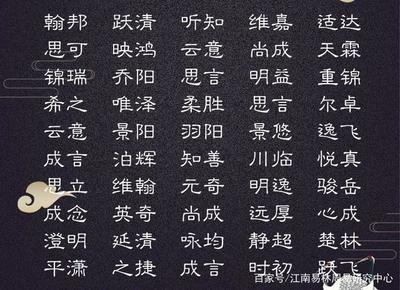 翰邦 跃清 听知 维嘉 适达
思可 映鸿 云意 尚成 天霖
锦瑞 乔阳 思言 明益 重锦
希之 唯泽 柔胜 思言 尔卓
云意 景阳 羽阳 景悠 逸飞
成言 泊辉 知善 川临 悦真
思立 维翰 元奇 明逸 骏岳
成念 英奇 尚成 远厚 心成
澄明 延清 咏均 静超 楚林
平潇 之捷 成言 时初 跃飞
百家号/江南易林周易研究中心